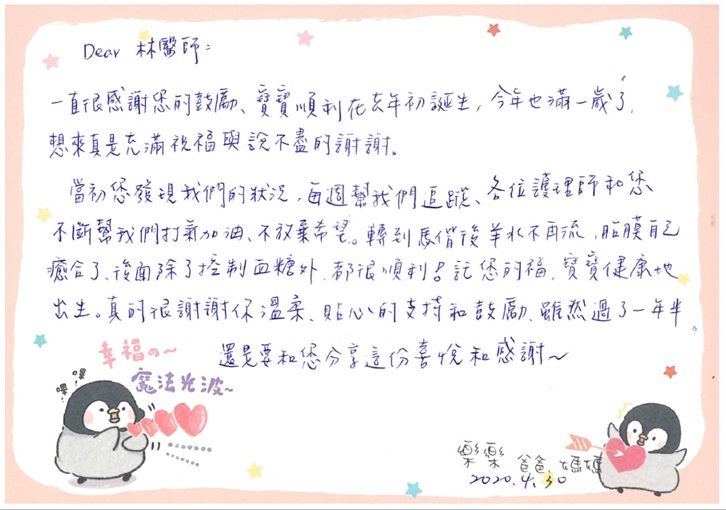 Dear 林醫師：
一直很感謝您的鼓勵、寶寶順利在去年初誕生，今年也滿一歲了，
想來真是充滿祝福與說不盡的謝謝。
當初您發現我們的狀況，每週幫我們追蹤、各位護理師和您
不斷幫我們打氣加油、不放棄希望。轉到馬偕後羊水不再流，胎膜自己
癒合了、後面除了控制血糖外、都很順利！託您的福，寶寶健康地
出生。真的很謝謝你溫柔、貼心的支持和鼓勵、雖然過了一年半
還是要和您分享這份喜悅和感謝～
幸福の～
魔法光波～
嘿！嘿！
樂樂 爸爸、媽媽
2020.4.30